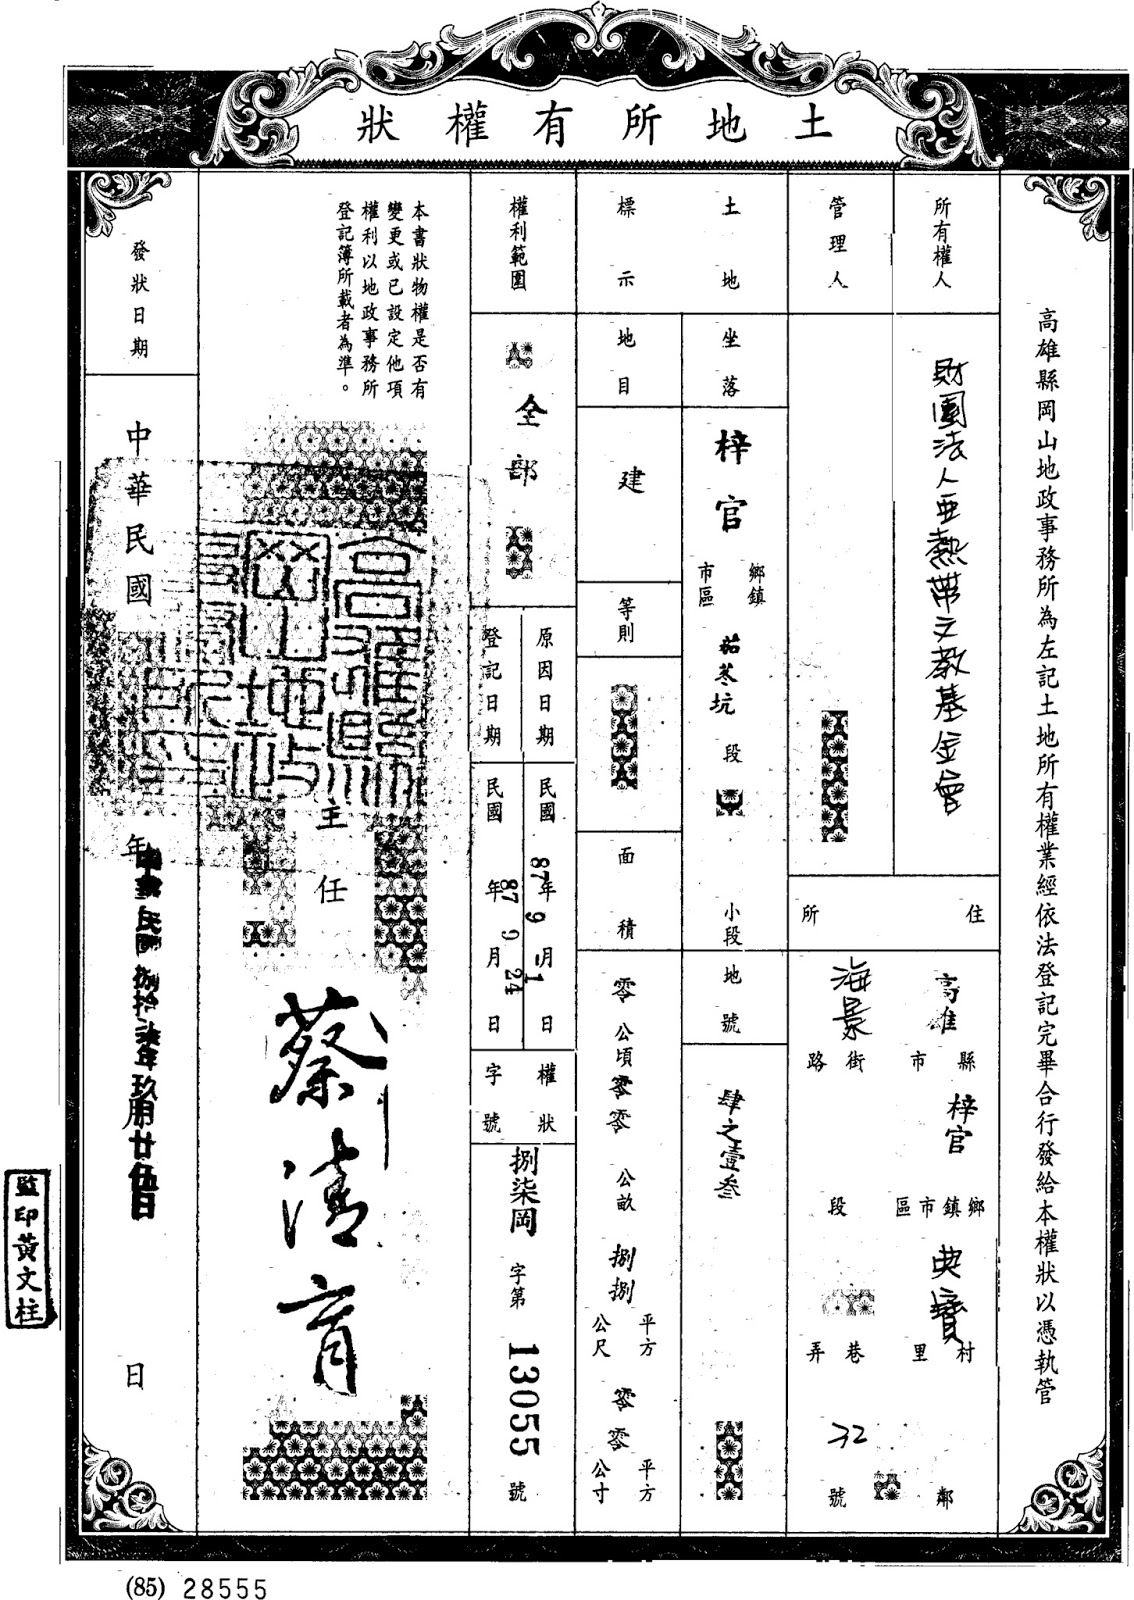 土地所有權狀
高雄縣岡山地政事務所為左記土地所有權業經依法登記完畢合行發給本權狀以憑執管
所有權人
財團法人亞熱帶文教基金會
管理人
住所
高雄
縣市
梓官
鄉鎮市區
典寶
村里
鄰
海景
街路
段
巷弄
32
號
土地標示
坐落
梓官
鄉鎮市區
茄苳坑
段
小段
地號
肆之壹叁
地目
建
等則
面積
零公頃零零公畝捌捌平方公尺零零平方公寸
權利範圍
全部
原因日期
民國87年9月1日
登記日期
民國87年9月24日
權狀字號
捌柒岡字第13055號
本書狀物權是否有
變更或已設定他項
權利以地政事務所
登記簿所載者為準。
主任
蔡清育
發狀日期
中華民國
年
日
中華民國捌拾柒年玖月廿伍日
監印黃文柱
(85) 28555